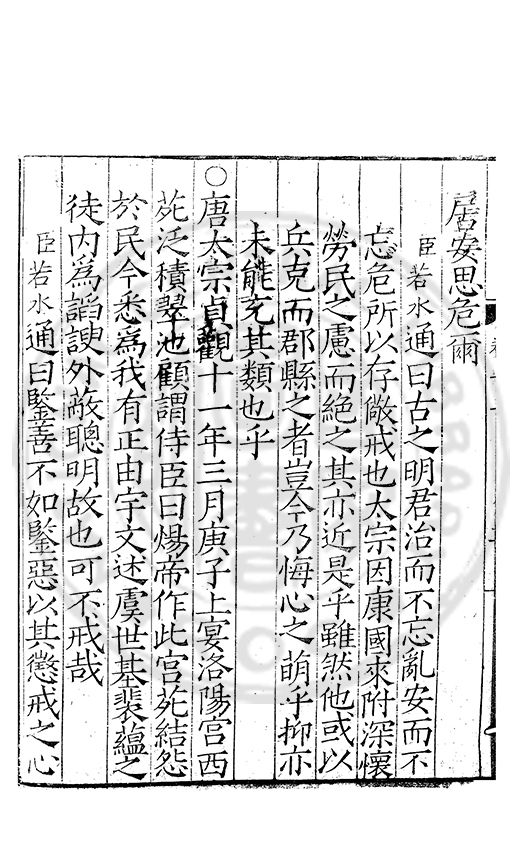 居安思危爾
臣若水通曰古之明君治而不忘亂安而不
忘危所以存儆戒也太宗因康國求附深懷
勞民之慮而絕之其亦近是乎雖然他或以
兵克而郡縣之者豈今乃悔心之萌乎抑亦
未能充其類也乎
○唐太宗貞觀十一年三月庚子上宴洛陽宮西
苑泛積翠池顧謂侍臣曰煬帝作此宮苑結怨
於民今悉為我有正由宇文述虞世基裴蘊之
徒內為諂諛外蔽聰明故也可不戒哉
臣若水通曰鑒善不如鑒惡以其懲戒之心